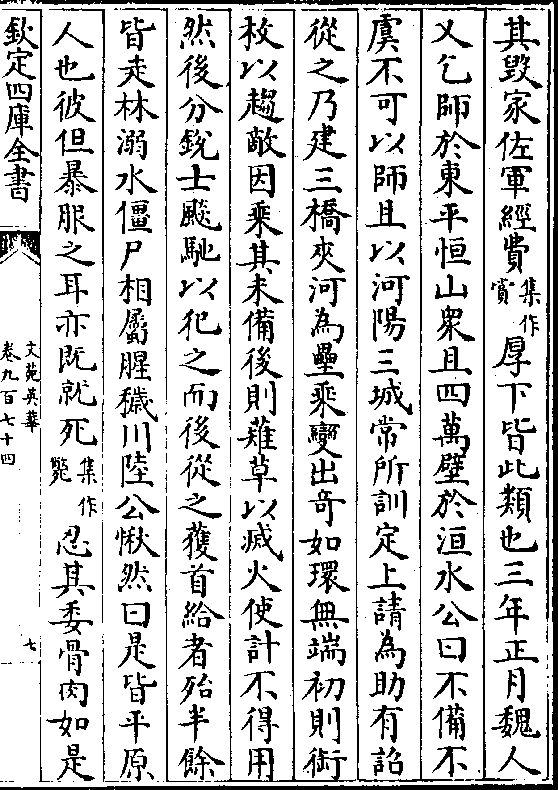 其毀家佐軍經費集作賚厚下皆此類也三年正月魏人
又乞師於東平恒山衆且四萬壁於洹水公曰不備不
虞不可以師且以河陽三城常所訓定上請為助有詔
從之乃建三橋夾河為壘乘變出奇如環無端初則銜
枚以趨敵因乘其未備後則薙草以滅火使計不得用
然後分銳士颷馳以犯之而後從之獲首級者殆半餘
皆走林溺水僵尸相屬腥穢川陸公愀然曰是皆平原
人也彼但暴服之耳亦既就死集作斃忍其委骨肉如是
欽定四庫全書
文苑英華
卷九百七十四
七